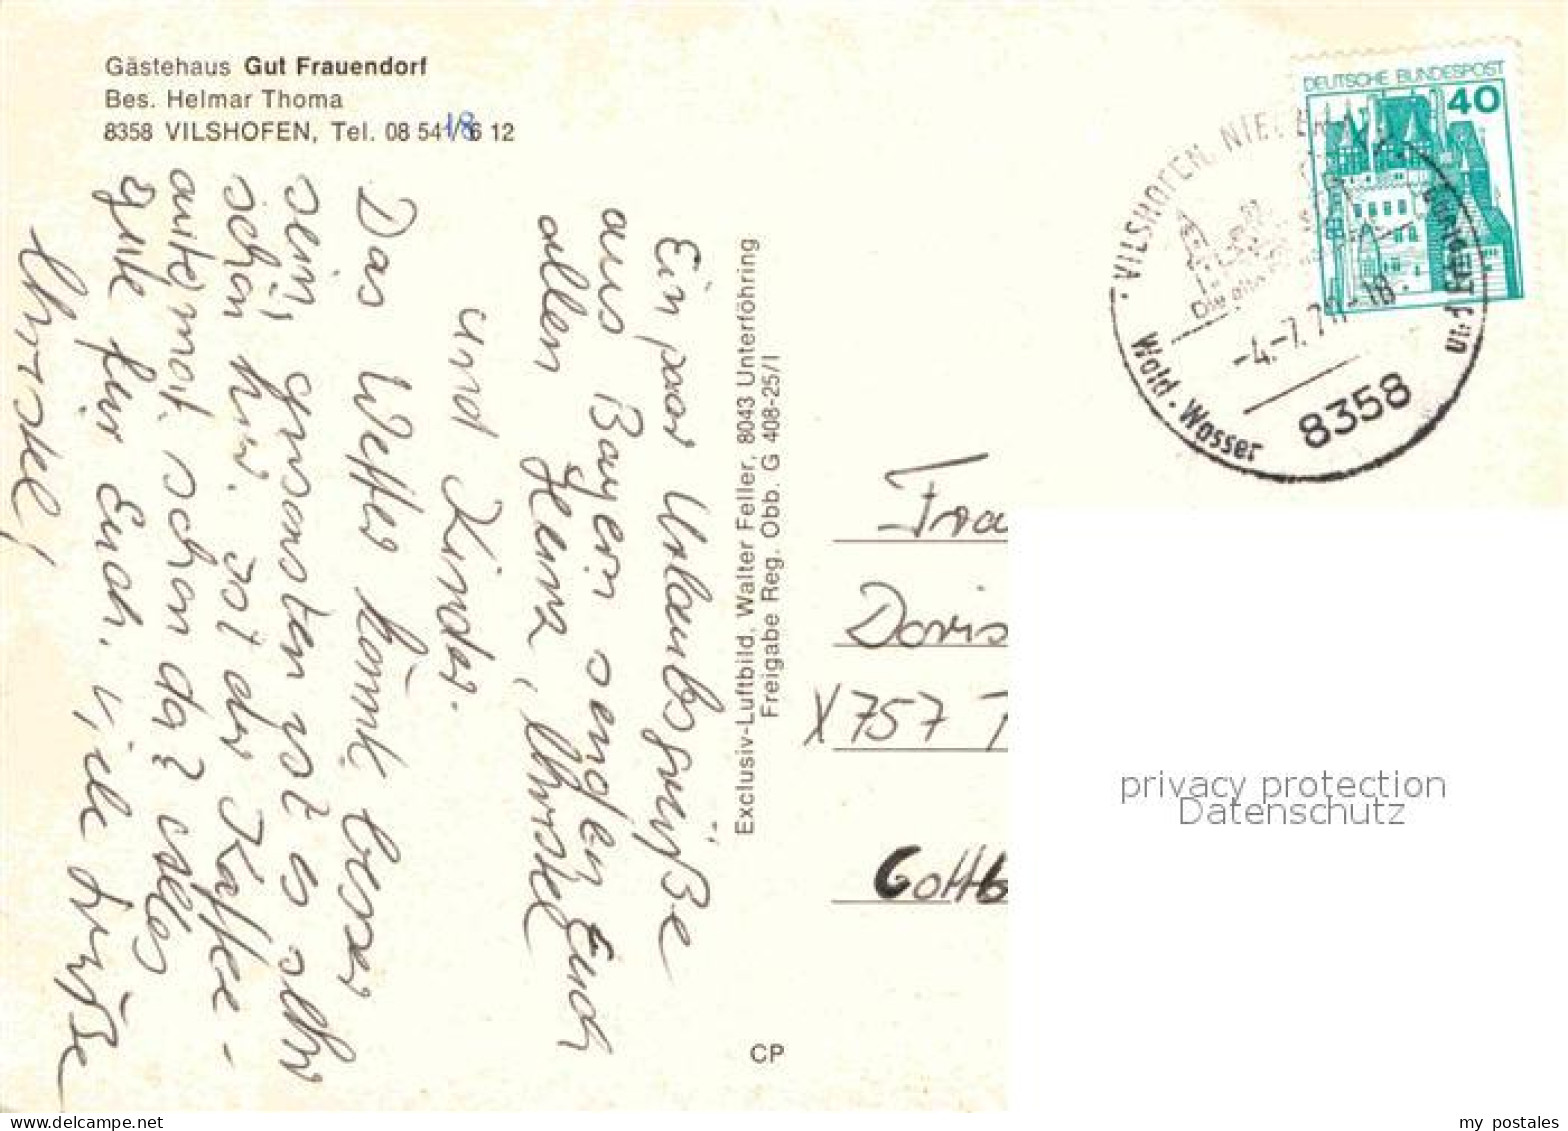 Gästehaus Gut Frauendorf
Bes. Helmar Thoma
8358 VILSHOFEN, Tel. 08 541/8 6 12
Ein paar Urlaubsgrüße
aus Bayern senden Euch
allen Heinz, Christel
und Kinder.
Das Wetter könnte besser
sein, ansonsten ist es sehr
schön hier. Ist der Kaffee-
automat schon da? Alles
gute für Euch. Viele Grüße
Christel
Exclusiv-Luftbild, Walter Feller, 8043 Unterföhring
Freigabe Reg. Obb. G 408-25/I
CP
DEUTSCHE BUNDESPOST
40
VILSHOFEN, NIEDERB
Die alte
-4.-7.7 -18
Wald · Wasser
8358
Frau
Doris
X757
Cottb
privacy protection
Datenschutz
my postales